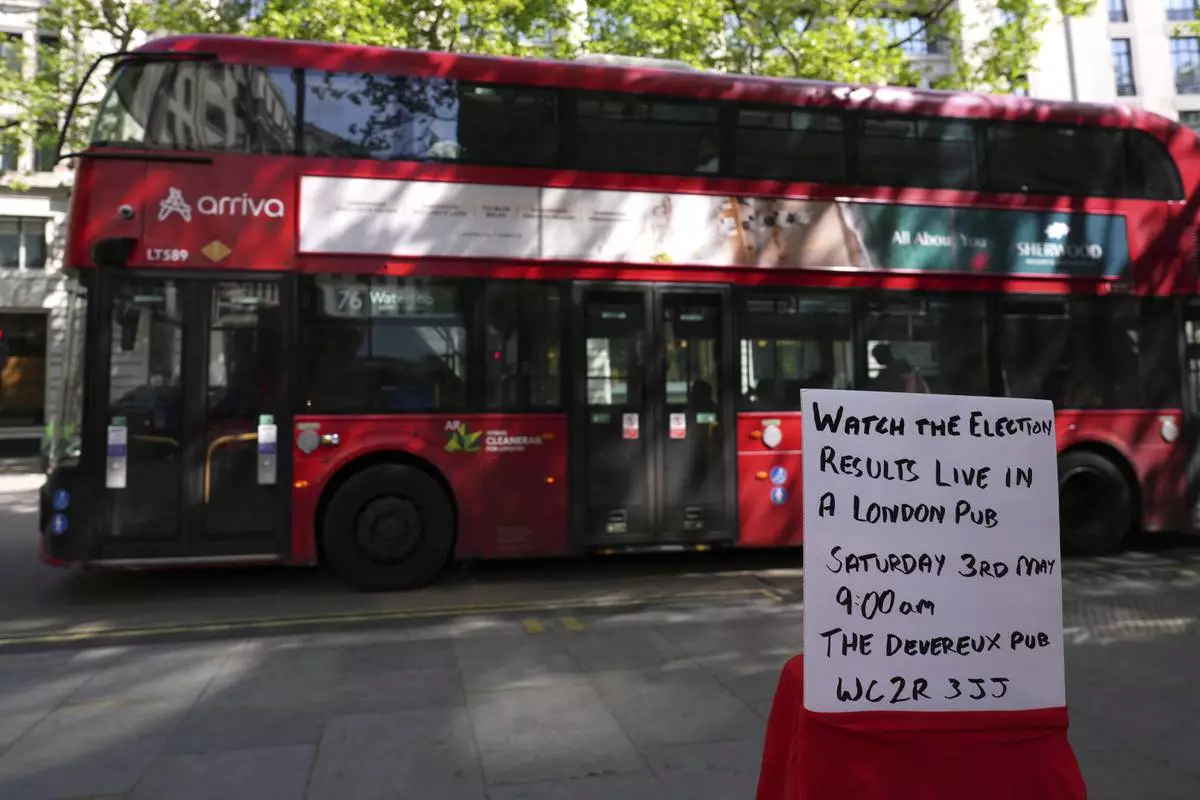 arriva
LT589
76 Waterloo
All About You
SHERWOOD
CLEANERAIR
FOR LONDON
WATCH THE ELECTION
RESULTS LIVE IN
A LONDON PUB
SATURDAY 3RD MAY
9:00am
THE DEVEREUX PUB
WC2R 3JJ